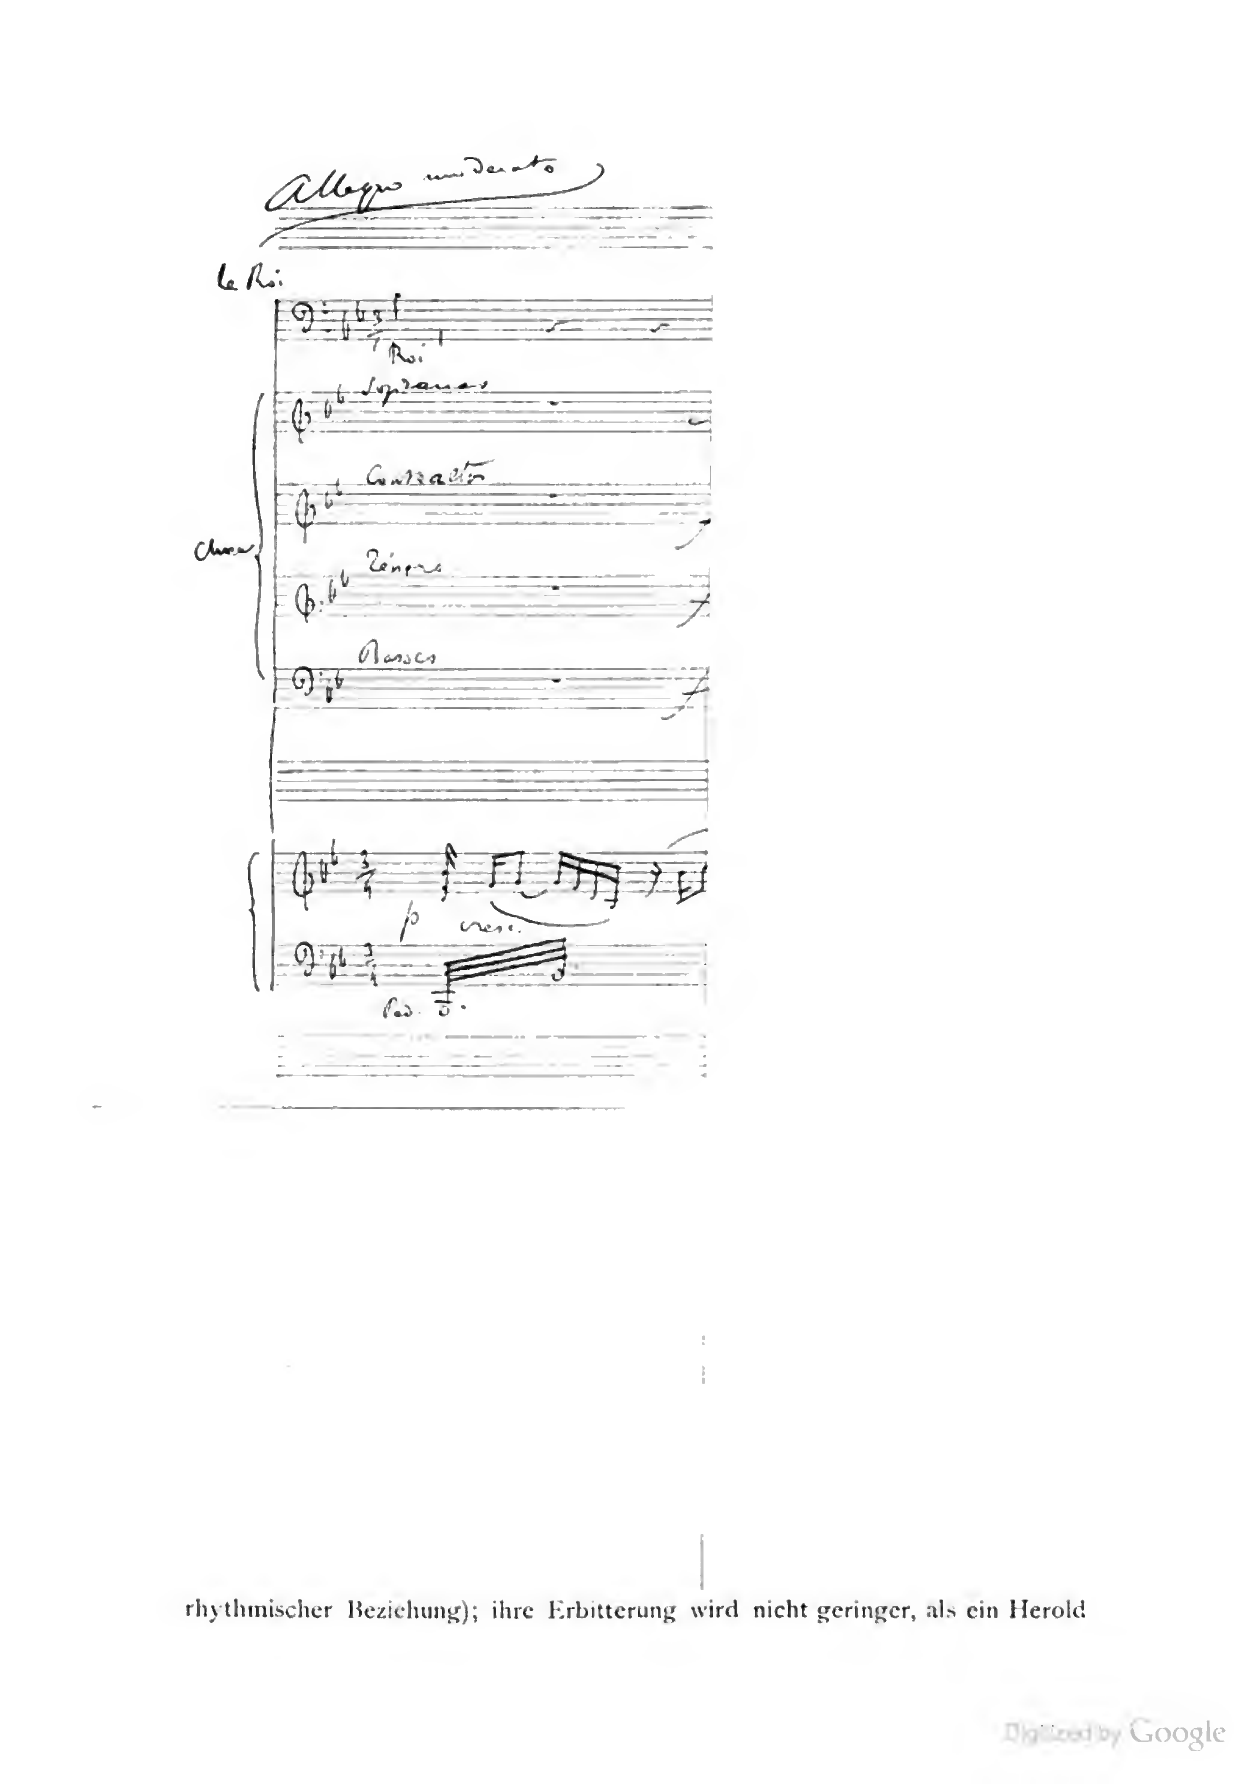 Allegro moderato
Le Roi
3/4
Roi
Sopranos
Contraltos
Ténors
Basses
3/4
p cresc.
3/4
Ped.
rhythmischer Beziehung); ihre Erbitterung wird nicht geringer, als ein Herold
Digitized by Google